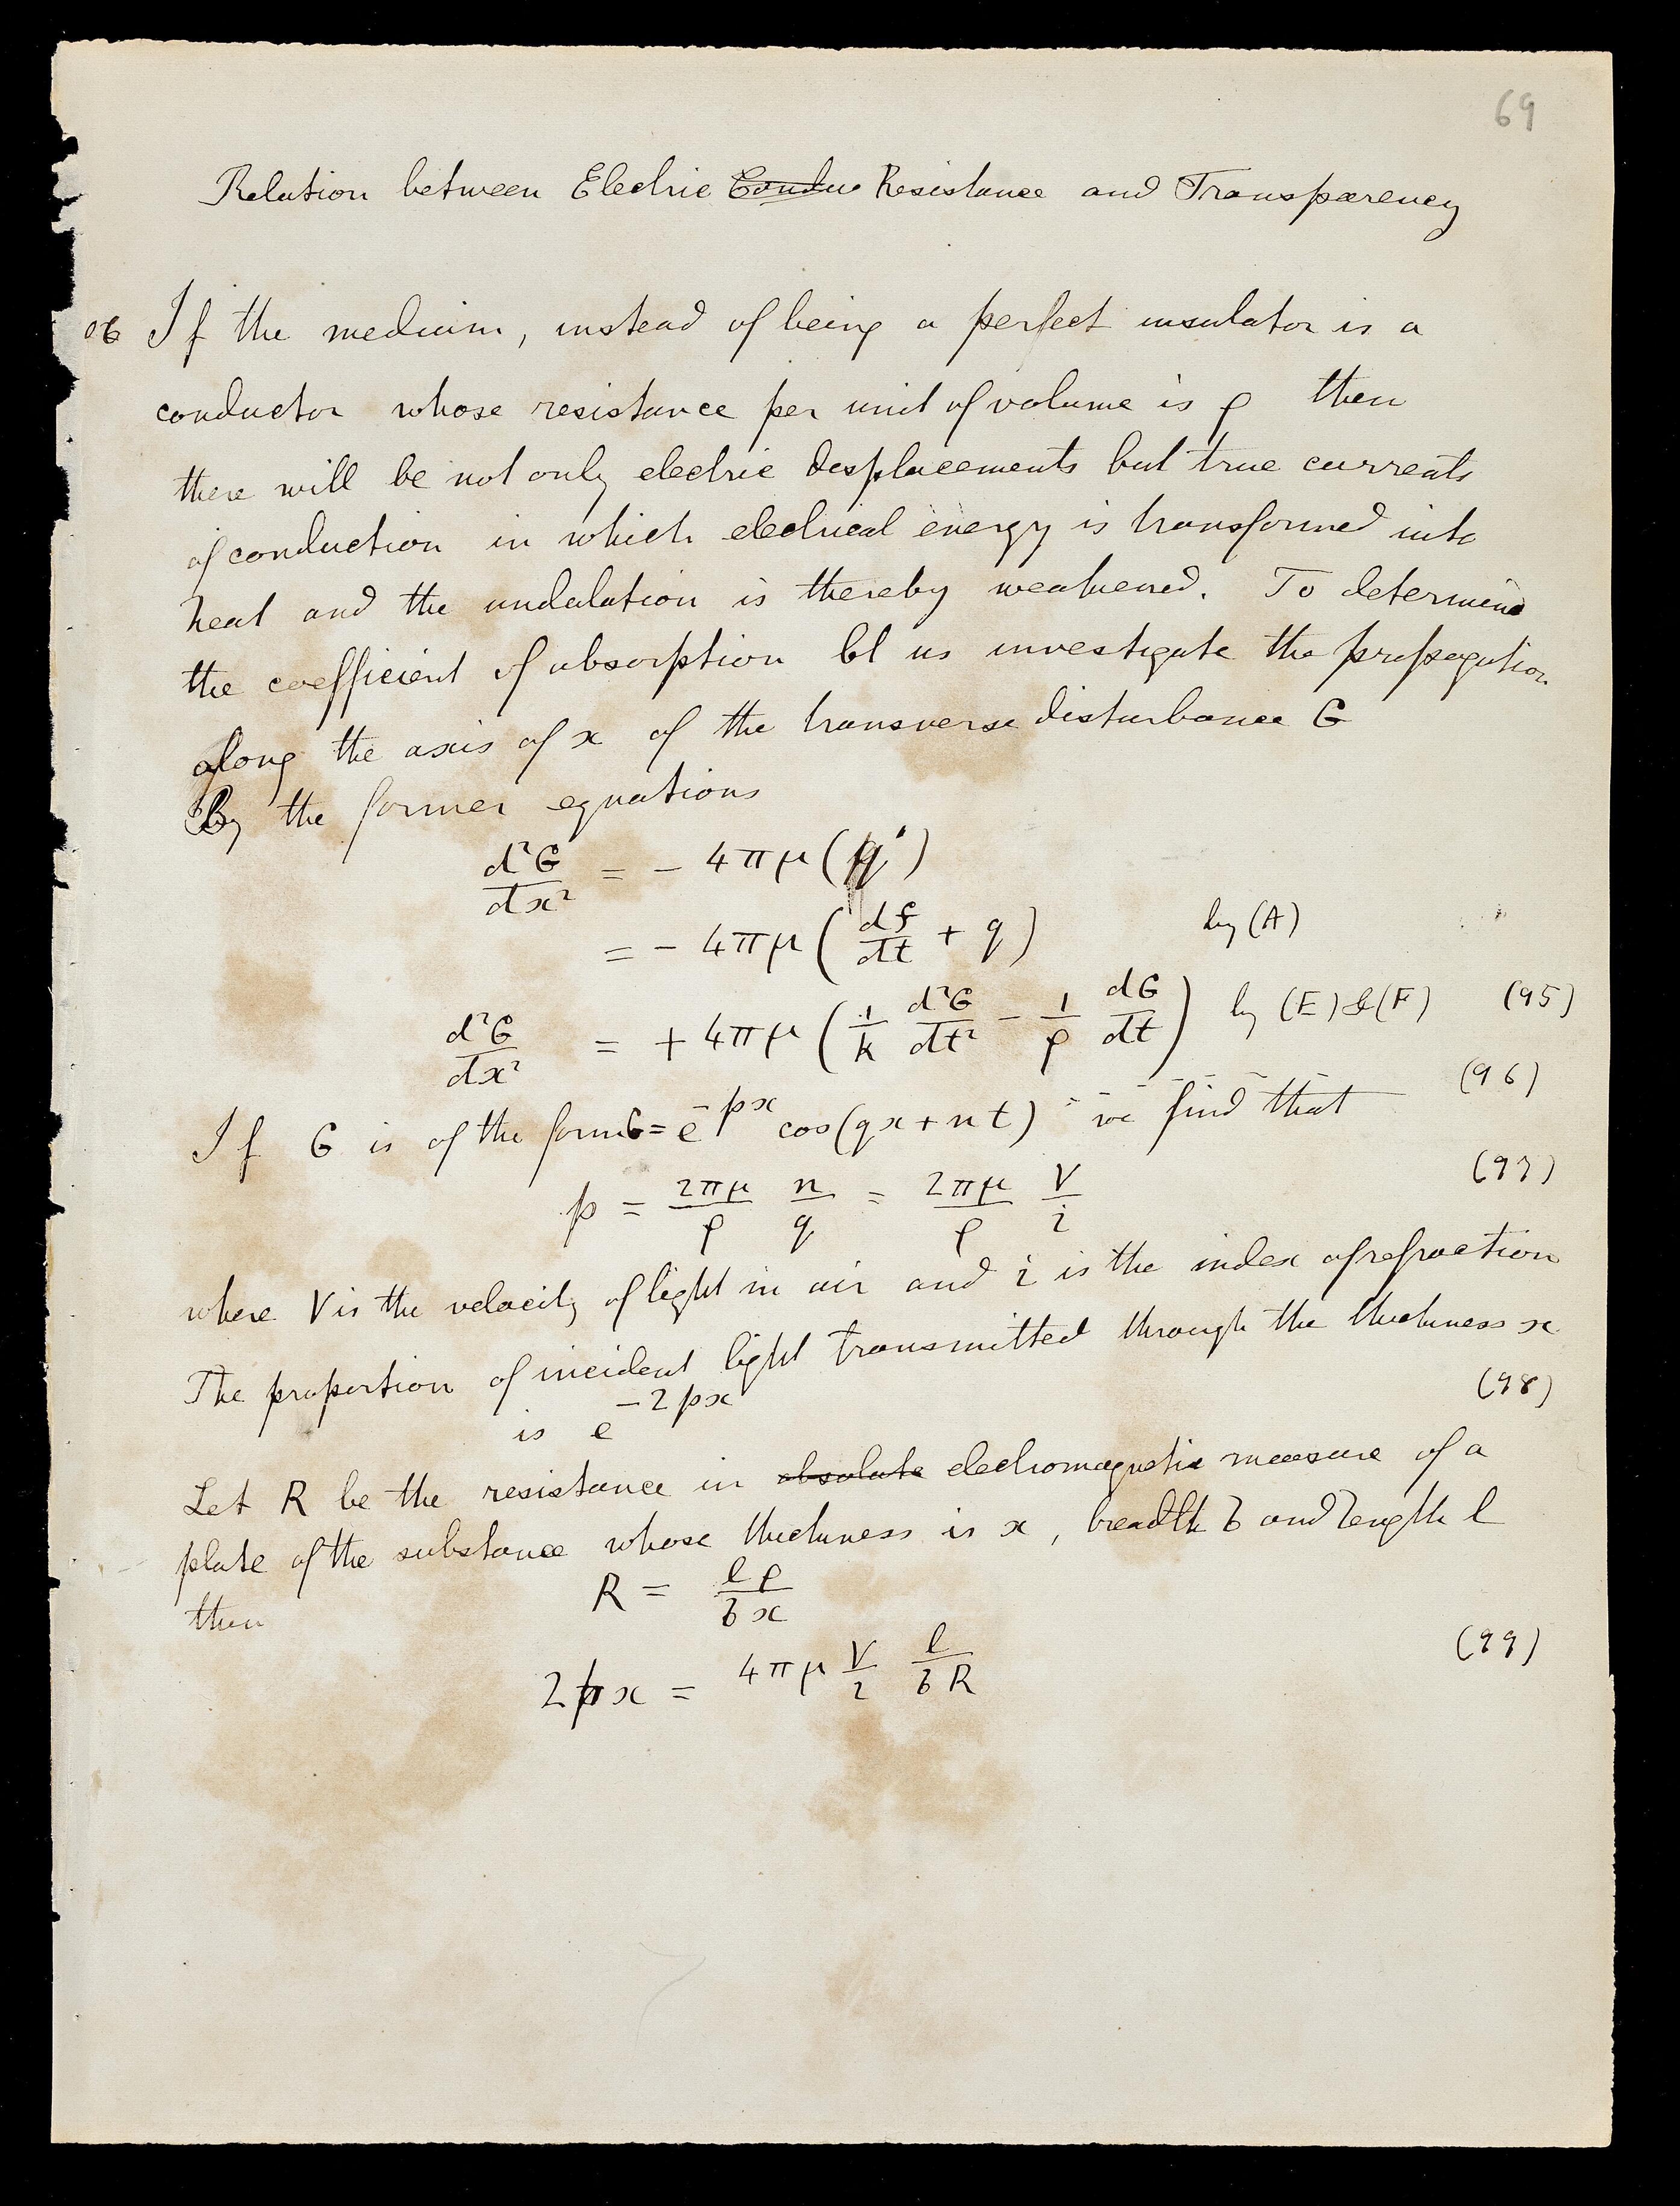 69
Relation between Electric Conduc Resistance and Transparency
06 If the medium, instead of being a perfect insulator is a
conductor whose resistance per unit of volume is ρ then
there will be not only electric displacements but true currents
of conduction in which electrical energy is transformed into
heat and the undulation is thereby weakened. To determine
the coefficient of absorption let us investigate the propagation
along the axis of x of the transverse disturbance G
By the former equations
d²G/dx² = − 4πμ(q')
= − 4πμ(df/dt + q) by (A)
d²G/dx² = + 4πμ(1/k d²G/dt² − 1/ρ dG/dt) by (E) & (F) (95)
If G is of the form G = e^−px cos(qx + nt) we find that (96)
p = 2πμ/ρ n/q = 2πμ/ρ V/i (97)
where V is the velocity of light in air and i is the index of refraction
The proportion of incident light transmitted through the thickness x
is e^−2px (98)
Let R be the resistance in absolute electromagnetic measure of a
plate of the substance whose thickness is x, breadth b and length l
then R = lρ/bx
2px = 4πμ V/i l/bR (99)